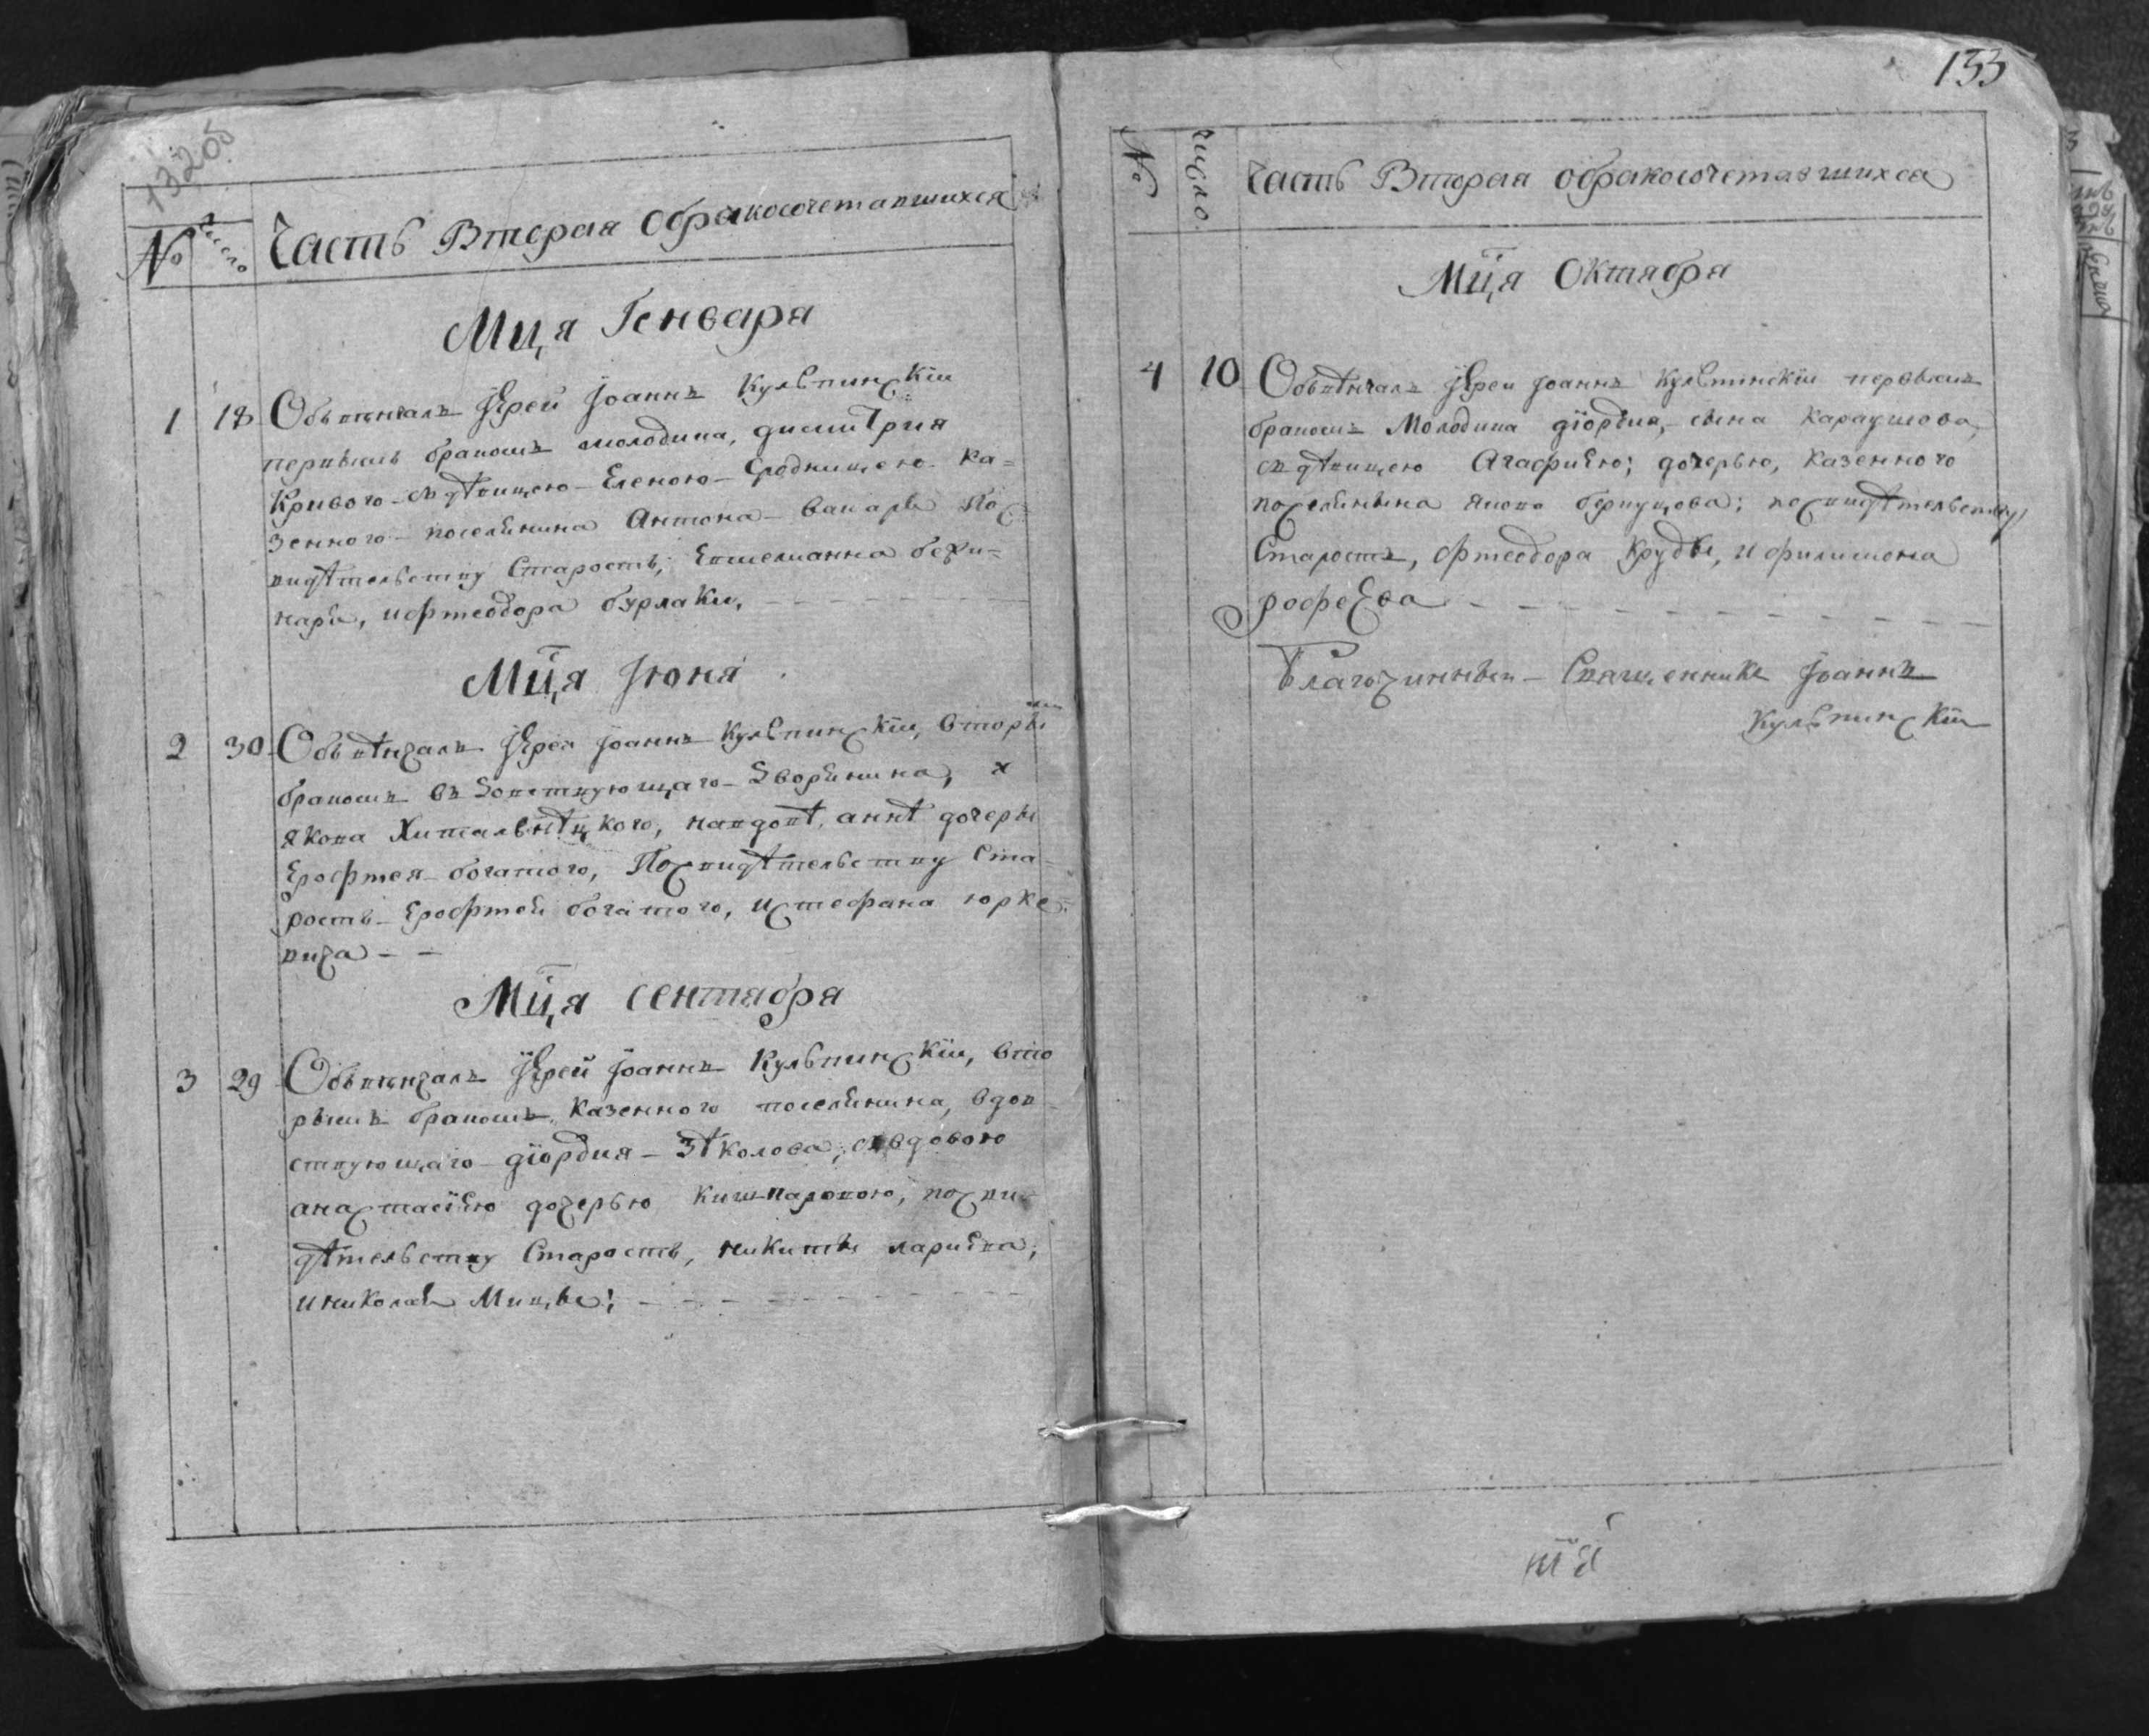 132об
№ число Часть Вторая обракосочетавшихся
Мцⷭ҇а Генваря
1 18 Обвѣнчалъ Іерей Іоаннъ Кульвинскій
первымъ бракомъ молодика, димитрия
Кривого – съ дѣвицею – Еленою – Сродницею – Ка=
зенного – поселянина Антона – Ванаря Пос
видѣтельству Старостъ, Емелианна бехи=
наря, и фтеодора бурлаки,
Мц̃а Іюня
2 30 Обвѣнчалъ Іерей Іоаннъ Кульвинскій, вторымъ
бракомъ въ довствующаго – дворянина, х
Якова Хительнѣцкого, навдовѣ, аннѣ дочеры
Ерофтея – богатого, Посвидѣтельству Ста=
ростъ – Ерофтея богатого, и стефана юрке=
вича – –
Мц̃а Сентября
3 29 Обвѣнчалъ Іерей Іоаннъ Кульвинскій, вто
рымъ бракомъ, казенного поселянина, вдов
ствующаго – діордия – Зѣколова, съ вдовою
анастасіею дочерью Кишпаровою, посви=
дѣтельству Старостъ, никиты лариева,
и николая Мицы;
133
№ число Часть Вторая обракосочетавшихся
Мц̃а Октября
4 10 Обвѣнчалъ Іерей Іоаннъ Кульвинскій первымъ
бракомъ Молодика діордия, сына Караушова,
съ дѣвицею Агафиею; дочерью, казенного
поселянина якова бернуцова; посвидѣтельству,
Старостъ, фтеодора Круды, и филимона
рофеева
Благочинный – Священникъ Іоаннъ
Кульвинскій